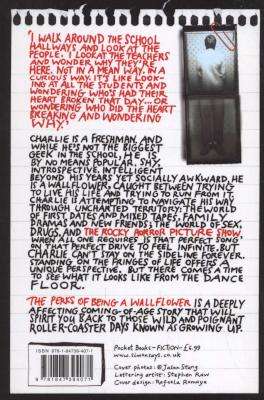 'I WALK AROUND THE SCHOOL
HALLWAYS AND LOOK AT THE
PEOPLE. I LOOK AT THE TEACHERS
AND WONDER WHY THEY'RE
HERE. NOT IN A MEAN WAY. IN A
CURIOUS WAY. IT'S LIKE LOOK-
ING AT ALL THE STUDENTS AND
WONDERING WHO'S HAD THEIR
HEART BROKEN THAT DAY... OR
WONDERING WHO DID THE HEART
BREAKING AND WONDERING
WHY.'
CHARLIE IS A FRESHMAN. AND
WHILE HE'S NOT THE BIGGEST
GEEK IN THE SCHOOL, HE IS
BY NO MEANS POPULAR. SHY,
INTROSPECTIVE, INTELLIGENT
BEYOND HIS YEARS YET SOCIALLY AWKWARD, HE
IS A WALLFLOWER, CAUGHT BETWEEN TRYING
TO LIVE HIS LIFE AND TRYING TO RUN FROM IT.
CHARLIE IS ATTEMPTING TO NAVIGATE HIS WAY
THROUGH UNCHARTED TERRITORY: THE WORLD
OF FIRST DATES AND MIXED TAPES, FAMILY
DRAMAS AND NEW FRIENDS; THE WORLD OF SEX,
DRUGS, AND THE ROCKY HORROR PICTURE SHOW,
WHEN ALL ONE REQUIRES IS THAT PERFECT SONG
ON THAT PERFECT DRIVE TO FEEL INFINITE. BUT
CHARLIE CAN'T STAY ON THE SIDELINE FOREVER.
STANDING ON THE FRINGES OF LIFE OFFERS A
UNIQUE PERSPECTIVE. BUT THERE COMES A TIME
TO SEE WHAT IT LOOKS LIKE FROM THE DANCE
FLOOR.
THE PERKS OF BEING A WALLFLOWER IS A DEEPLY
AFFECTING COMING-OF-AGE STORY THAT WILL
SPIRIT YOU BACK TO THOSE WILD AND POIGNANT
ROLLER-COASTER DAYS KNOWN AS GROWING UP.
ISBN 978-1-84739-407-1
9 781847 394071
Pocket Books – FICTION – £6.99
www.simonsays.co.uk
Cover photos: © Jason Stang
Lettering artist: Stephen Raw
Cover design: Rafaela Romaya